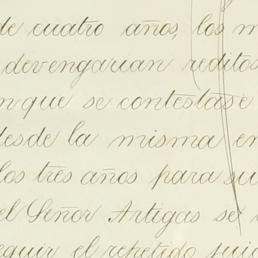 de cuatro años, los m
devengarian reditos
n que se contestase
desde la misma en
los tres años para su
el Señor Artigas se
eguir el repetido juic